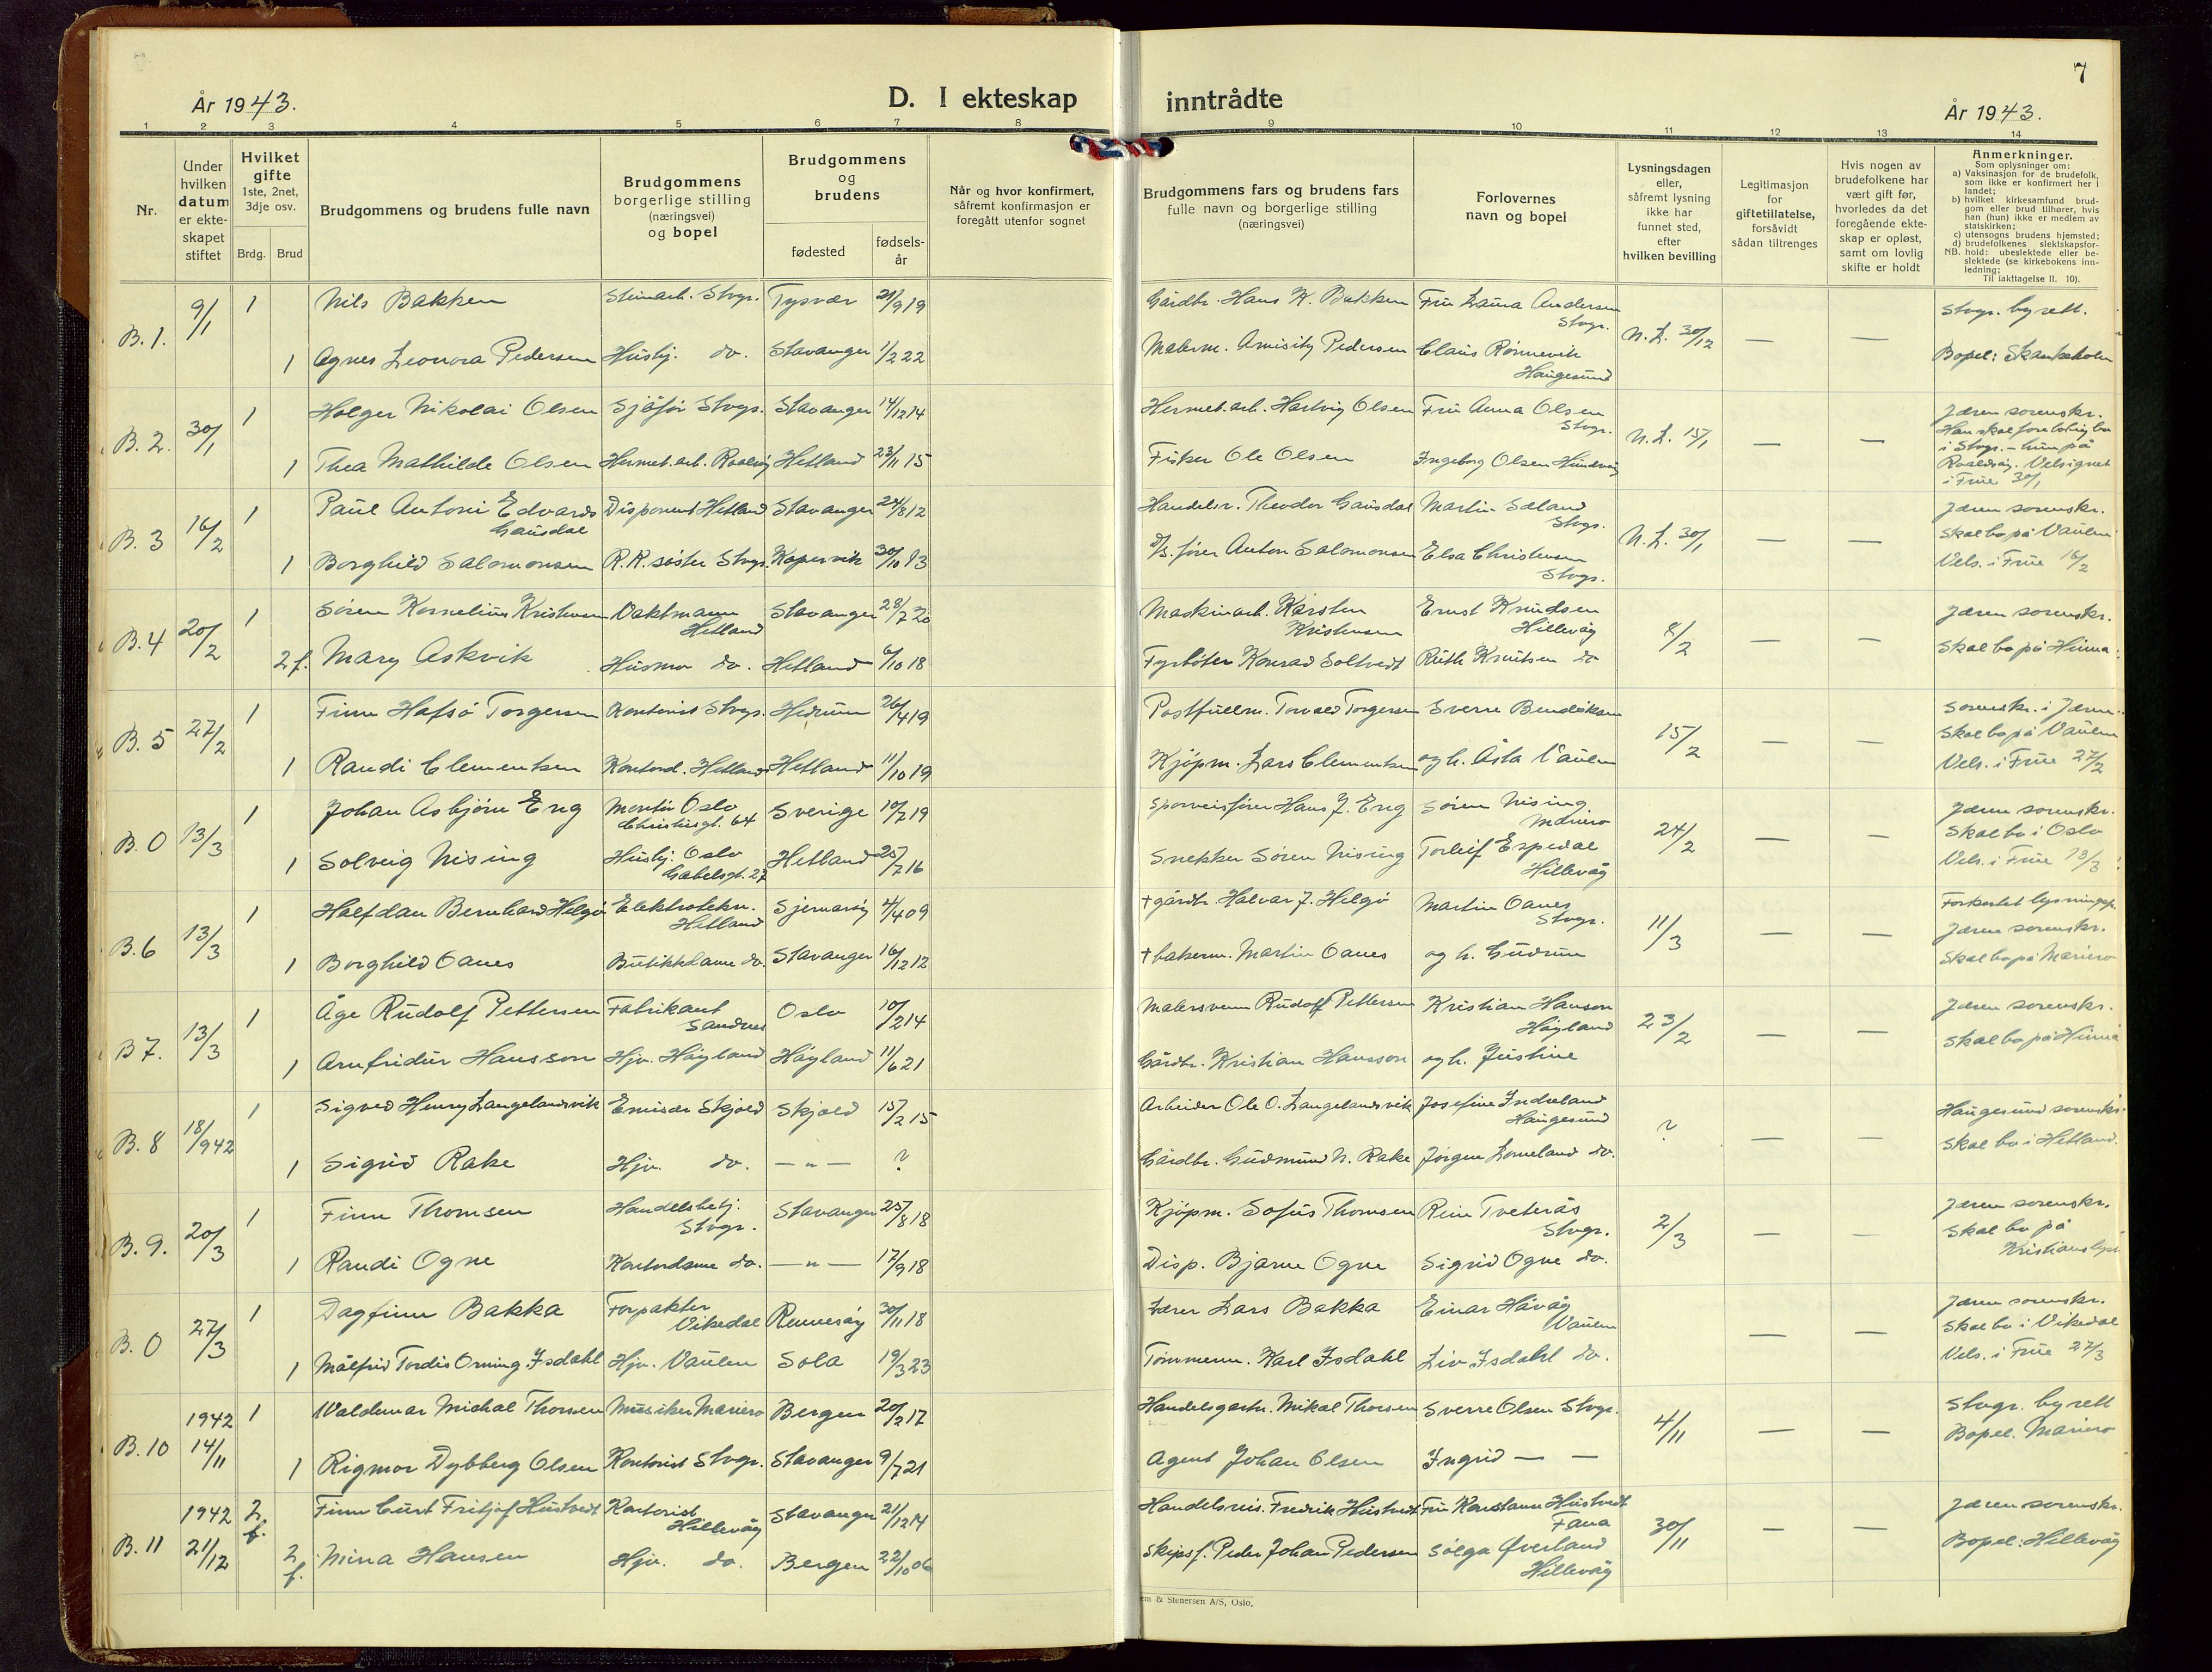 7
År 1943.
D. I ekteskap inntrådte
År 1943.
1 2 3 4 5 6 7 8 9 10 11 12 13 14
Nr.
Under hvilken datum er ekte-skapet stiftet
Hvilket gifte
1ste, 2net, 3dje osv.
Brdg. Brud
Brudgommens og brudens fulle navn
Brudgommens borgerlige stilling (næringsvei) og bopel
Brudgommens og brudens
fødested
fødsels-år
Når og hvor konfirmert, såfremt konfirmasjon er foregått utenfor sognet
Brudgommens fars og brudens fars fulle navn og borgerlige stilling (næringsvei)
Forlovernes navn og bopel
Lysningsdagen eller, såfremt lysning ikke har funnet sted, efter hvilken bevilling
Legitimasjon for giftetillatelse, forsåvidt sådan tiltrenges
Hvis nogen av brudefolkene har vært gift før, hvorledes da det foregående ekte-skap er opløst, samt om lovlig skifte er holdt
Anmerkninger.
Som oplysninger om:
a) Vaksinasjon for de brudefolk, som ikke er konfirmert her i landet;
b) hvilket kirkesamfund brud-gom eller brud tilhører, hvis han (hun) ikke er medlem av statskirken;
c) utensogns brudens hjemsted;
d) brudefolkenes slektskapsfor-hold: ubeslektede eller be-slektede (se kirkebokens inn-ledning;
NB. Til iakttagelse II. 10).
B. 1. 9/1 1 Nils Bakken Steinarb. Stvgr. Tysvær 21/9 19 Gårdbr. Hans K. Bakken Fru Laura Andersen Stvgr. N.L. 30/12 — — Stvgr. byrett.
1 Agnes Leonora Pedersen Husbj. do. Stavanger 1/2 22 Malerm. Pedersen Claus Rønnevik Haugesund Bopel: Skankeholm
B. 2. 30/1 1 Holger Nikolai Olsen Sjåfør Stvgr. Stavanger 14/12 14 Hermet.arb. Hartvig Olsen Fru Anna Olsen Stvgr. N.L. 15/1 — — Jæren sorenskr.
Han skal foreløbig bo i Stvgr. – hun på Roaldsøy. Velsignet i Frue 30/1
1 Thea Mathilde Olsen Hermet.arb. Roaldsøy Hetland 23/11 15 Fisker Ole Olsen Ingeborg Olsen Hundvåg
B. 3 16/2 1 Paul Antoni Edvards Gausdal Disponent Hetland Stavanger 24/8 12 Handelsr. Theodor Gausdal Martin Sæland Stvgr. N.L. 30/1 — — Jæren sorenskr.
Skal bo på Vaulen
1 Borghild Salomonsen R.K. søster Stvgr. Kopervik 30/10 13 D/S. fører Anton Salomonsen Elsa Christensen Stvgr. Vels. i Frue 16/2
B. 4 20/2 1 Søren Kornelius Kristensen Vaktmann Hetland Stavanger 28/7 20 Maskinarb. Karsten Kristensen Ernst Knudsen Hillevåg 8/2 — — Jæren sorenskr.
2 f. Mary Askvik Husmor do. Hetland 6/10 18 Fyrbøter Konrad Soltvedt Ruth Knutsen do Skal bo på Hinna
B. 5 27/2 1 Finn Hafsö Torgersen Kontorist Stvgr. Hedrum 26/4 19 Postfullm. Torvald Torgersen Sverre Bendiksen 15/2 — — Sorenskr. i Jæren.
Skal bo på Vaulen
1 Randi Clementsen Kontord. Hetland Hetland 11/10 19 Kjøpm. Lars Clementsen og h. Åsta Vaulen Vels. i Frue 27/2
B. 0 13/3 1 Johan Asbjörn Eng Montør Oslo Christiesgt. 64 Sverige 10/7 19 Sporveisfører Hans J. Eng Sören Nising Mariero 24/2 — — Jæren sorenskr.
Skal bo i Oslo
1 Solveig Nising Husbj. Oslo Gabelsgt. 27 Hetland 25/7 16 Snekker Sören Nising Torleif Espedal Hillevåg Vels. i Frue 13/3
B. 6 13/3 1 Halfdan Bernhard Helgö Elektrotekn. Hetland Sjernarøy 4/4 09 † gårdbr. Halvar J. Helgö Martin Oanes Stvgr. 11/3 — — Forkortet lysningsp.
Jæren sorenskr.
1 Borghild Oanes Butikkdame do. Stavanger 16/12 12 † bakerm. Martin Oanes og h. Gudrun Skal bo på Mariero
B 7. 13/3 1 Åge Rudolf Pettersen Fabrikant Sandnes Oslo 10/2 14 Malersvenn Rudolf Pettersen Kristian Hanson Høyland 23/2 — — Jæren sorenskr.
1 Arnfridur Hansson Hjv. Høyland Høyland 11/6 21 Gårdbr. Kristian Hansson og h. Justine Skal bo på Hinna
B. 8 18/9 42 1 Sigved Henry Langelandsvik Emisær Skjold Skjold 15/2 15 Arbeider Ole O. Langelandsvik Josefine Indreland Haugesund ? — — Haugesund sorenskr.
1 Sigrid Rake Hjv. do. — " — ? Gårdbr. Gudmund N. Rake Jørgen Lomeland do. Skal bo i Hetland.
B. 9. 20/3 1 Finn Thomsen Handelsbetj. Stvgr. Stavanger 25/8 18 Kjöpm. Sofus Thomsen Rein Tveterås Stvgr. 2/3 — — Jæren sorenskr.
Skal bo på Kristianslyst
1 Randi Ogne Kontordame do. — " — 17/9 18 Disp. Bjarne Ogne Sigrid Ogne do.
B. 0 27/3 1 Dagfinn Bakka Forpakter Vikedal Rennesøy 30/11 18 Lærer Lars Bakka Einar Håvåg Vaulen — — Jæren sorenskr.
Skal bo i Vikedal
1 Målfrid Tordis Orning Isdahl Hjv. Vaulen Sola 19/3 23 Tömmerm. Karl Isdahl Liv Isdahl do. Vels. i Frue 27/3
B. 10 1942 14/11 1 Waldemar Michal Thorsen Musiker Mariero Bergen 20/2 17 Handelsgartn. Mikal Thorsen Sverre Olsen Stvgr. 4/11 — — Stvgr. byrett
1 Rigmor Dybberg Olsen Kontorist Stvgr. Stavanger 9/7 21 Agent Johan Olsen Ingrid — — Bopel. Mariero
B. 11 1942 21/12 2 f. Finn Curt Fritjof Hustvedt Kontorist Hillevåg Stavanger 21/12 14 Handelsreis. Fredrik Hustvedt Fru Konstanse Hustvedt Fana 30/11 — — Jæren sorenskr.
2 f. Mina Hansen Hjv. do. Bergen 22/10 06 Skipsf. Peder Johan Pedersen Solga Øverland Hillevåg Bopel: Hillevåg
em & Stenersen A/S, Oslo.